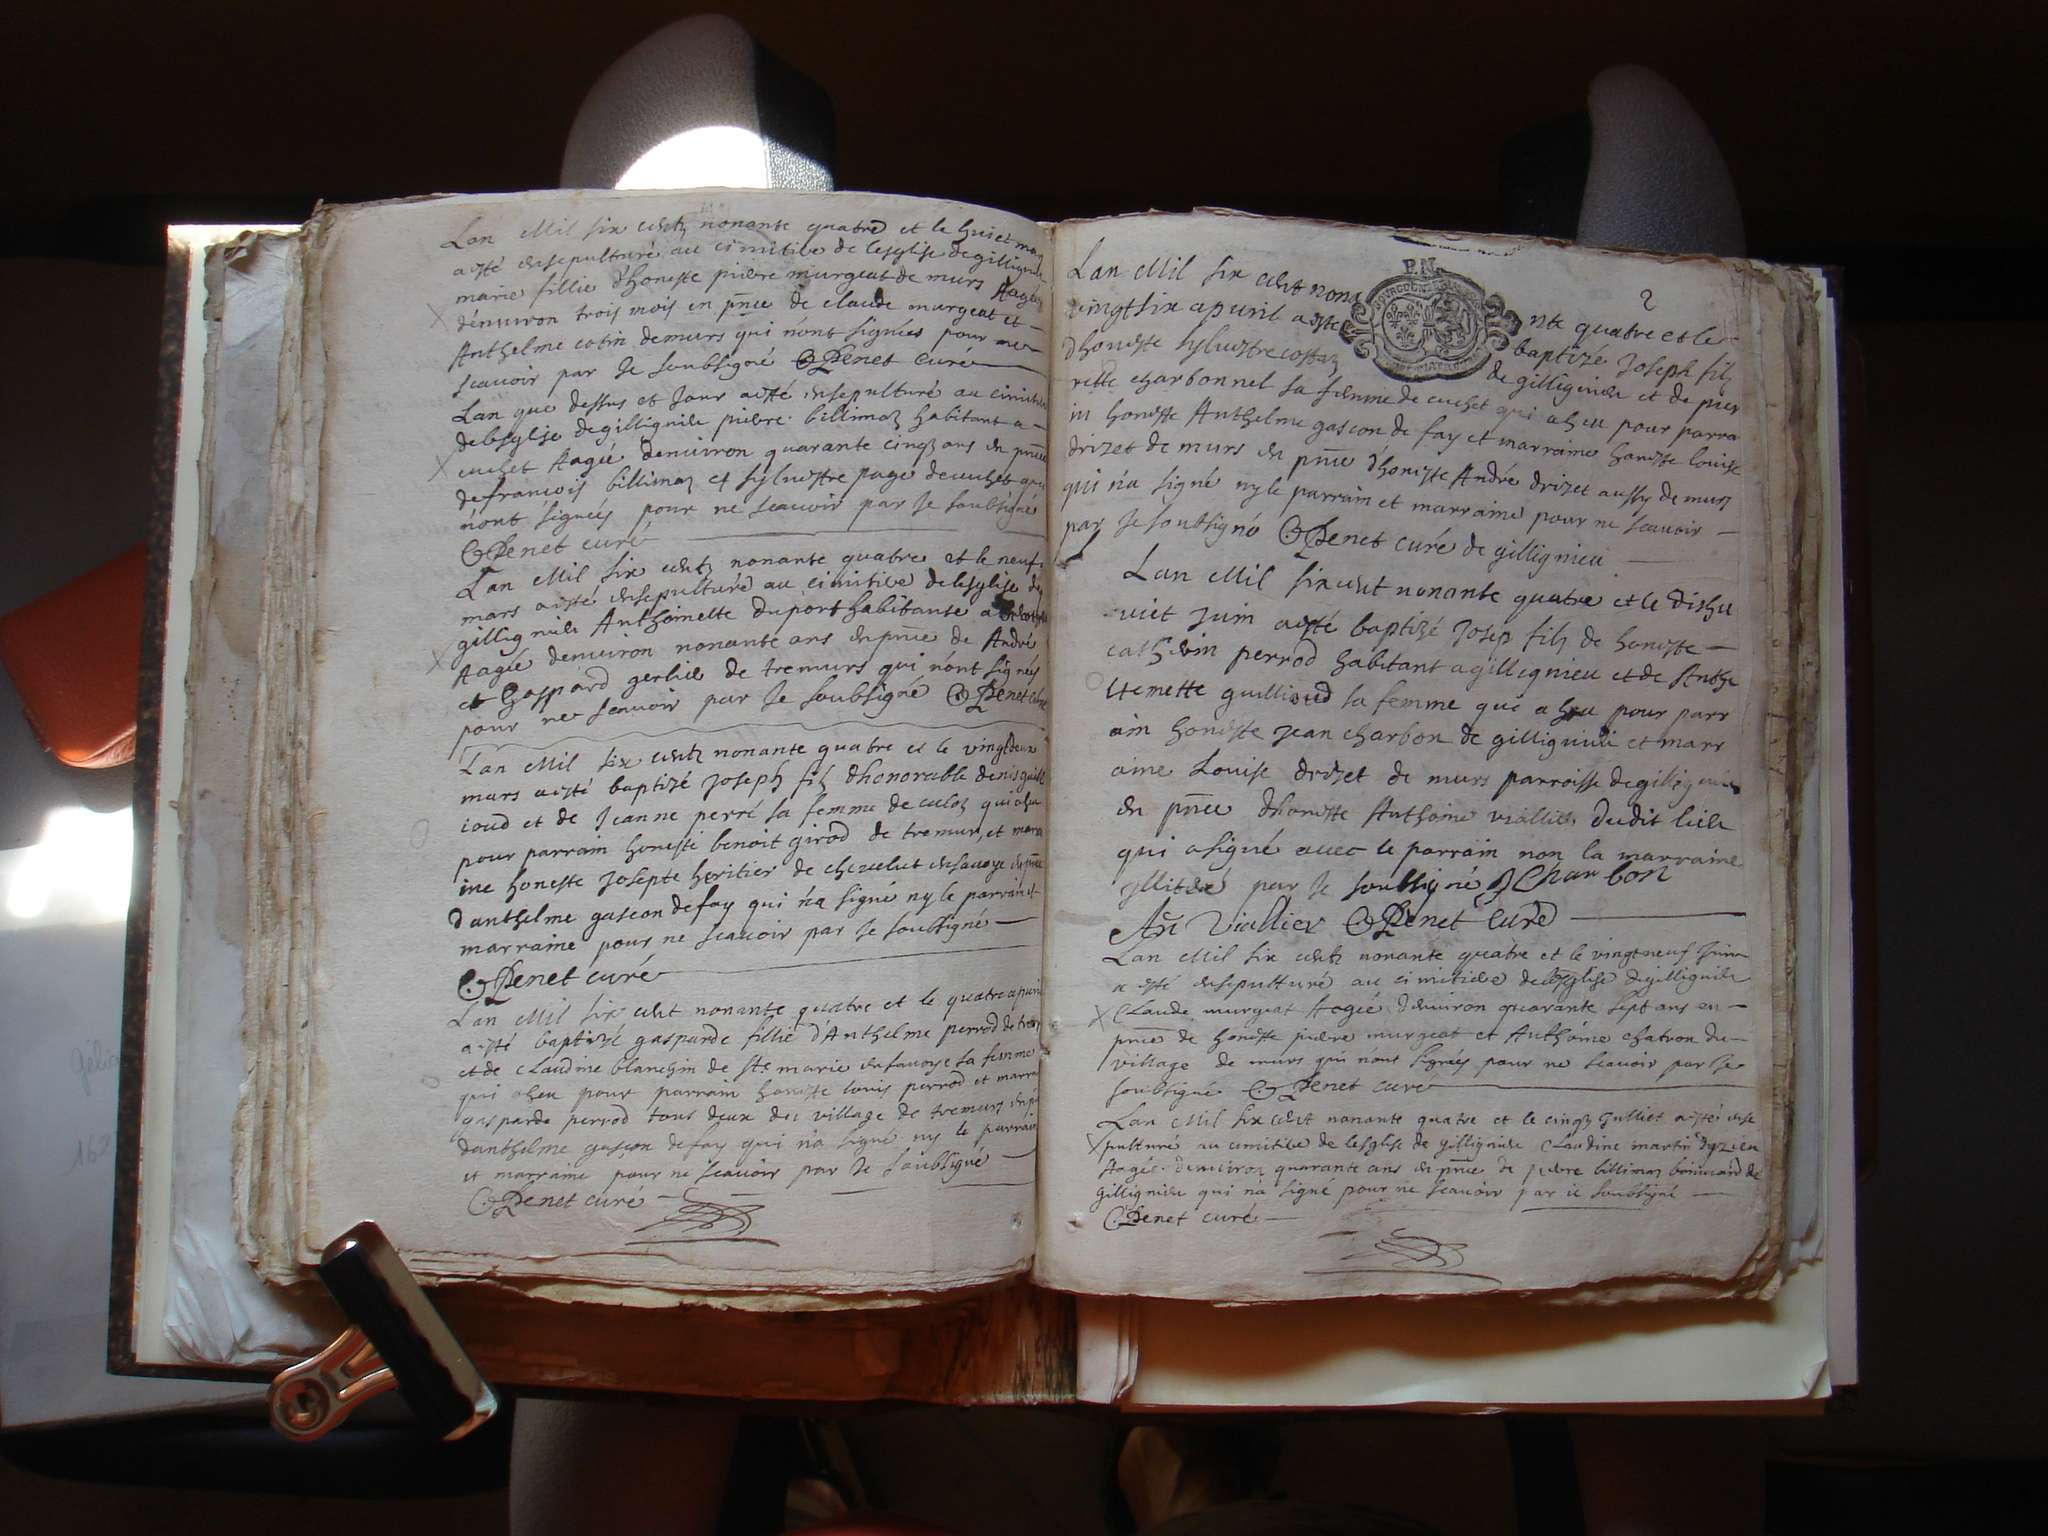 Lan Mil six centz nonante quatre et le huict mars
a esté ensepulturé au cimitire de lesglise de gillignieu
marie fillie d'honeste pierre murgeat de murs Aagée
denuiron trois mois en pnce de claude murgeat et
Anthelme cotin de murs qui n'ont signées pour ne
scauoir par Je soubsigné CPenet curé
Lan que dessus et Jour a esté ensepulturé au cimitire
de lesglise de gillignieu pierre billimaz habitant a
cuchet Aagé denuiron quarante cinqz ans en pnce
de francois billimaz et syluestre page de cuchet qui
n'ont signées pour ne scauoir par Je soubsigné
CPenet curé
Lan Mil six centz nonante quatre et le neuf
mars a esté ensepulturée au cimitire de lesglise de
gillignieu Anthoinette duport habitante a
Aagée denuiron nonante ans en pnce de André
et Gaspard gerlie de tremurs qui n'ont signés
pour ne scauoir par Je soubsigné CPenet curé
Lan Mil six centz nonante quatre et le vingtdeux
mars a esté baptizé Joseph filz d'honorable denis guill
ioud et de Jeanne perré sa femme de culoz qui a heu
pour parrain honeste benoit girod de tremurs, et marra
ine honeste Josepte heritier de chevelut en sauoye en pnce
d'anthelme gascon de fay qui n'a signé ny le parrain et
marraine pour ne scauoir par Je soubsigné
CPenet curé
Lan Mil six cent nonante quatre et le quatre apuril
a esté baptizé gasparde fillie d'Anthelme perrod de tremurs
et de Claudine blanchin de Ste marie en sauoye sa femme
qui a heu pour parrain honeste louis perrod et marra
gasparde perrod tous deux du village de tremurs en pnce
danthelme gascon de fay qui n'a signé ny le parrain
et marraine pour ne scauoir par Je soubsigné
CPenet curé
P.N.
2
Lan Mil six cent nona nte quatre et le
vingtsix apuril a esté baptizé Joseph filz
d'honeste syluestre costaz de gillignieu et de pier
rette charbonnel sa femme de cuchet qui a heu pour parra
in honeste Anthelme gascon de fay et marraine honeste louise
drizet de murs en pnce d'honeste André drizet aussy de murs
qui n'a signé ny le parrain et marraine pour ne scauoir
par Je soubsigné CPenet curé de gillignieu
Lan Mil six cent nonante quatre et le dishu
uict Juin a esté baptizé Josép filz de honeste
cathérin perrod habitant a gillignieu et de Anthe
lemette guillioud sa femme que a heu pour parr
ain honeste Jean charbon de gillignieu et marr
aine Louise drizet de murs parroisse de gillignieu
en pnce d'honeste Anthoine viallier dudit lieu
qui a signé auec le parrain non la marraine
Jllitéré par Je soubsigné J Charbon
An Viallier CPenet Curé
Lan Mil six centz nonante quatre et le vingtneuf Juin
a esté ensepulturé au cimitire de lesglise de gillignieu
Claude murgeat Aagée d'enuiron quarante sept ans en
pnce de honeste pierre murgeat et Anthoine chatron du
village de murs qui n'ont signées pour ne scauoir par Je
soubsigné CPenet curé
Lan Mil six cent nonante quatre et le cinqz Julliet a esté ense
pulturée au cimitire de lesglise de gillignieu Claudine martin dyzieu
Aagée denuiron quarante ans en pnce de pierre billimaz boinuard de
gillignieu qui n'a signé pour ne scauoir par ie soubsigné
CPenet curé